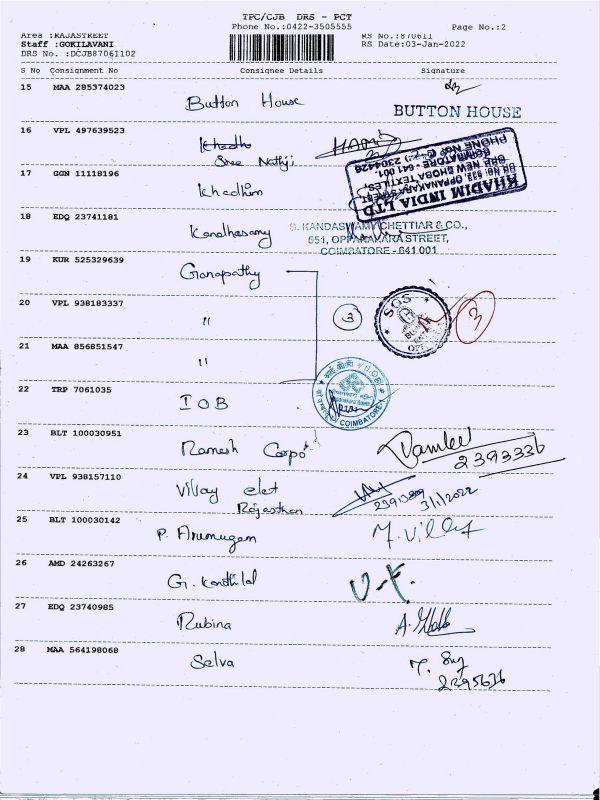 TPC/CJB DRS - PCT
Phone No.:0422-3505555 Page No.:2
Area :RAJASTREET RS No.:870611
Staff :GOKILAVANI RS Date:03-Jan-2022
DRS No. :DCJB87061102
S No Consignment No Consignee Details Signature
15 MAA 285374023
Button House
BUTTON HOUSE
16 VPL 497639523
Sree Nathji
17 GGN 11118196
Khadhim
KHADIM INDIA LTD
OPPANAKARA STREET,
OPP. NEW SHOBA TEXTILES,
COIMBATORE - 641 001
PHONE NO. 2304426
18 EDQ 23741181
Kandhasamy
S. KANDASWAMY CHETTIAR & CO.,
551, OPPANAKARA STREET,
COIMBATORE - 641 001
19 KUR 525329639
Ganapathy
20 VPL 938183337
"
3
SGS
3
21 MAA 856851547
"
22 TRP 7061035
IOB
COIMBATORE
23 BLT 100030951
Ramesh Corpo
2393336
24 VPL 938157110
Vijay elet
Rajasthan
3/1/2022
25 BLT 100030142
P. Arumugam
26 AMD 24263267
G. Kanthilal
27 EDQ 23740985
Rubina
28 MAA 564198068
Selva
2295636